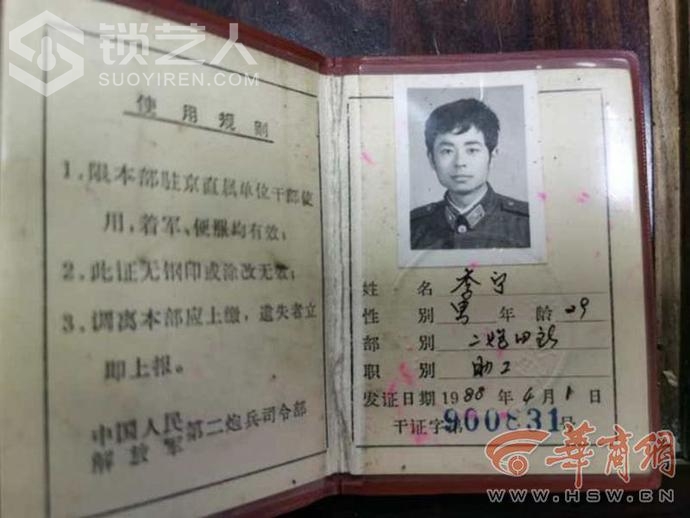 锁艺人
SUOYIREN.COM
使用规则
1.限本部驻京直属单位干部使
用,着军、便服均有效;
2.此证无钢印或涂改无效;
3.调离本部应上缴,遗失者立
即上报。
中国人民
解放军
第二炮兵司令部
姓名
性别 男 年龄 29
部别 二炮
职别 助工
发证日期1988年4月1日
干证字第900831号
华商网
www.HSW.CN